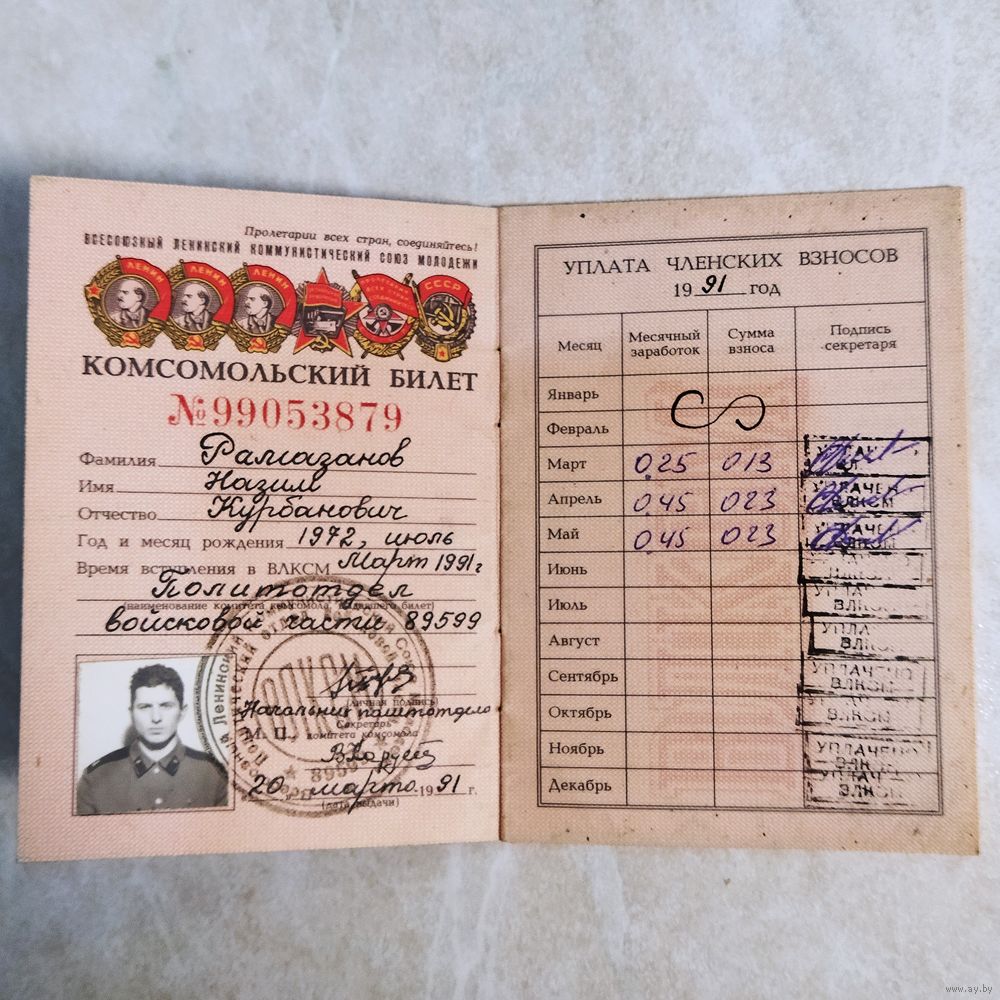 Пролетарии всех стран, соединяйтесь!
ВСЕСОЮЗНЫЙ ЛЕНИНСКИЙ КОММУНИСТИЧЕСКИЙ СОЮЗ МОЛОДЕЖИ
ЛЕНИН ЛЕНИН ЛЕНИН СССР
КОМСОМОЛЬСКИЙ БИЛЕТ
№99053879
Фамилия Рамазанов
Имя Назим
Отчество Курбанович
Год и месяц рождения 1972, июль
Время вступления в ВЛКСМ Март 1991 г
Политотдел
(наименование комитета комсомола, выдавшего билет)
войсковой части 89599
(личная подпись)
Начальник политотдела
Секретарь
М. П. комитета комсомола
20 марта 1991 г.
(дата выдачи)
УПЛАТА ЧЛЕНСКИХ ВЗНОСОВ
1991 год
Месяц Месячный заработок Сумма взноса Подпись секретаря
Январь
Февраль
Март 0.25 013
Апрель 0.45 023 УПЛАЧЕН ВЛКСМ
Май 0.45 023 УПЛАЧЕН
Июнь
Июль УПЛА ВЛКС
Август УПЛА ВЛКС
Сентябрь УПЛАЧЕНО ВЛКСМ
Октябрь ВЛКСМ
Ноябрь УПЛАЧЕНО ВЛКСМ
Декабрь УПЛАЧ ВЛКСМ
www.ay.by